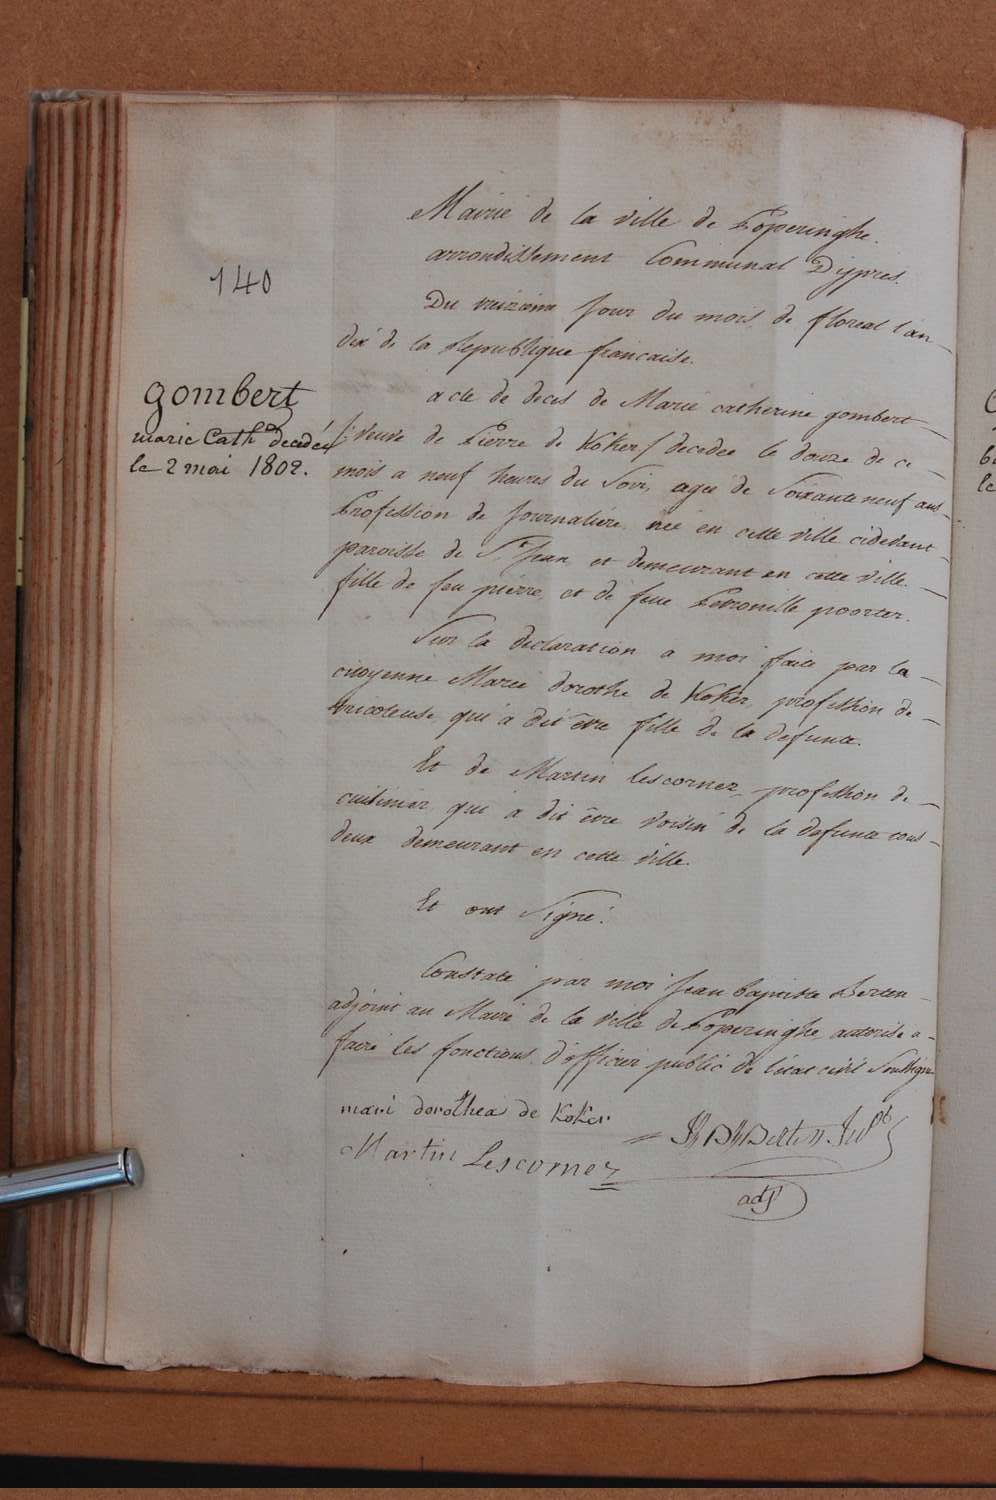 140
gombert
marie Cath decedée
le 2 mai 1802.
Mairie de la ville de Poperinghe.
arrondissement Communal D'ypres.
Du treizieme jour du mois de floreal l'an
dix de la Republique francaise.
acte de deces de Marie catherine gombert
/: veuve de Pierre de Koker/ decedee le douze de ce
mois a neuf heures du Soir, agee de Soixante neuf ans
Profession de Journaliere née en cette ville cidevant
paroisse de St Jean et demeurant en cette ville.
fille de feu pierre, et de feue Petronille poorter.
Sur la declaration a moi faite par la
citoyenne Marie dorothe de Koker, profession de
tricoteuse qui a dit être fille de la defunte.
Et de Martin lescornez, profession de
cuisinier qui a dit être voisin de la defunte tous
deux demeurant en cette ville.
Et ont Signé.
Constaté par moi Jean baptiste Berten
adjoint au Maire de la ville de Poperinghe, autorisé a
faire les fonctions d'officier public de l'etat civil Soussigné
mari dorothea de Koker
Martin Lescornez
adjt